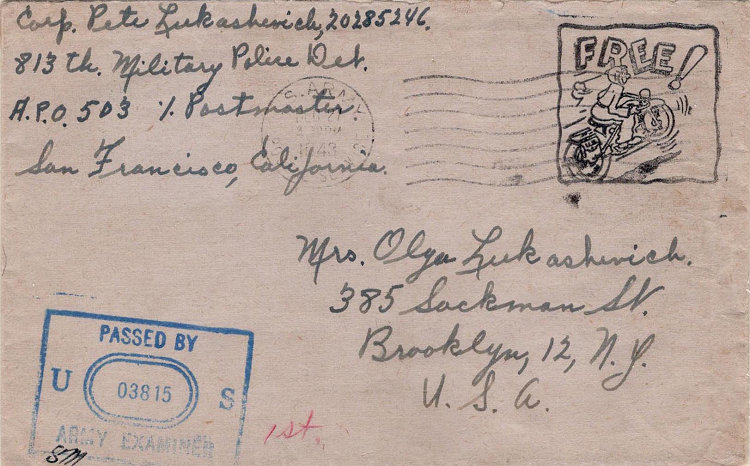 Corp. Pete Lukashevich, 20285246.
813th. Military Police Det.
A.P.O. 503 % Postmaster.
San Francisco, California.
1943
FREE!
Mrs. Olga Lukashevich.
385 Sackman St.
Brooklyn, 12, N.Y.
U. S. A.
PASSED BY
U 03815 S
ARMY EXAMINER
1st.